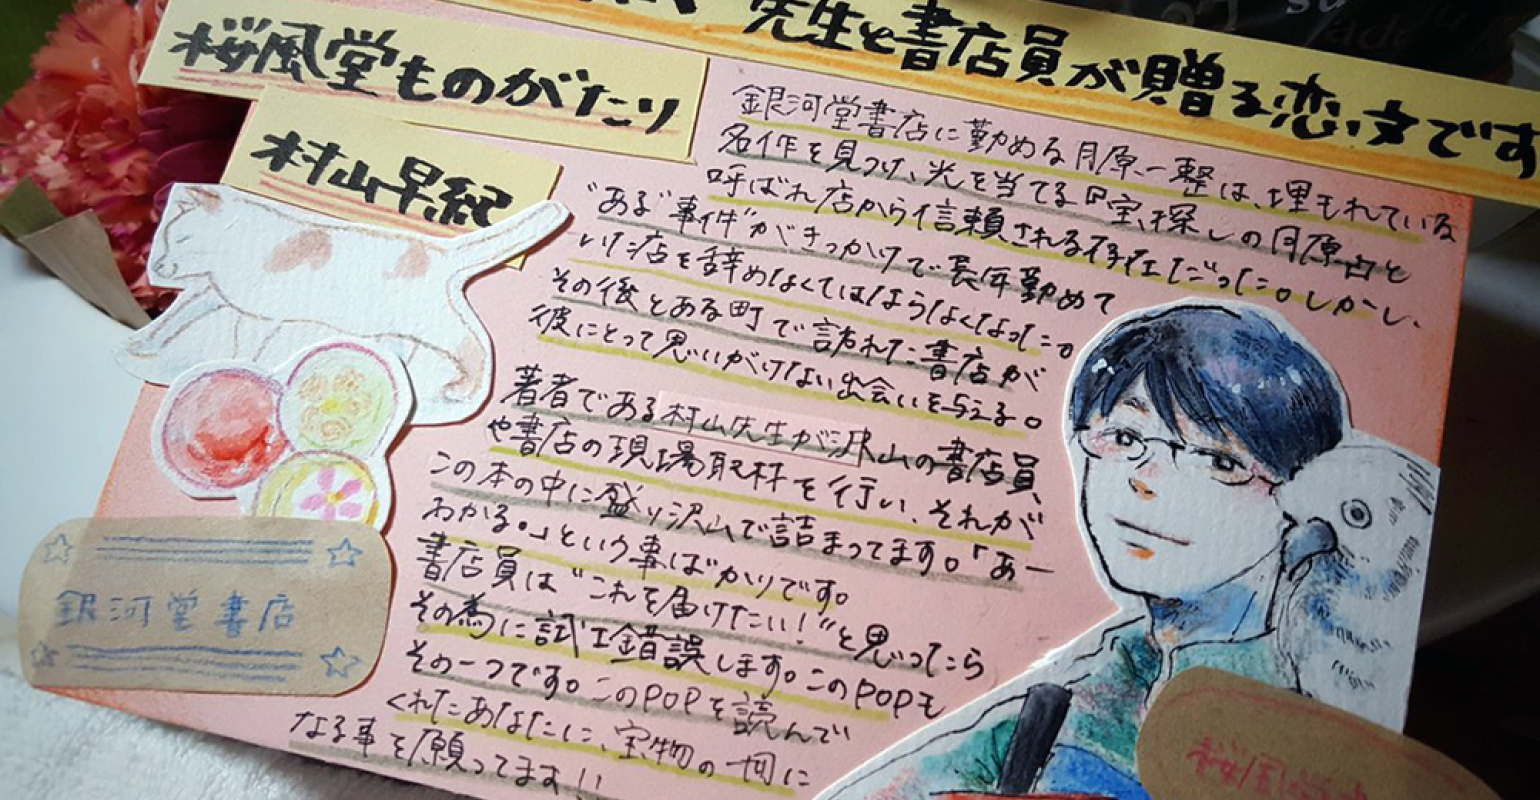 先生と書店員が贈る恋文です
桜風堂ものがたり
村山早紀
銀河堂書店に勤める月原一整は、埋もれている
名作を見つけ、光を当てる『宝探しの月原』と
呼ばれ店から信頼される存在だった。しかし、
"ある"事件"がきっかけで長年勤めて
いた店を辞めなくてはならなくなった。
その後とある町で訪れた書店が
彼にとって思いがけない出会いを与える。
著者である村山先生が沢山の書店員
や書店の現場取材を行い、それが
この本の中に盛り沢山で詰まってます。「あー
わかる。」という事ばかりです。
書店員は"これを届けたい!"と思ったら
その為に試行錯誤します。このPOPも
その一つです。このPOPを読んで
くれたあなたに、宝物の一冊に
なる事を願ってます!!
銀河堂書店
桜風堂